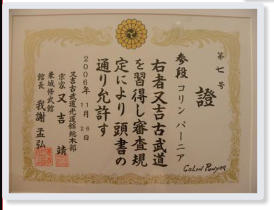 第七号
證
参段 コリン パーニア
右者又吉古武道
を習得し審査規
定により頭書の
通り允許す
2006年11月26日
又吉古武道光道館総本部
宗家 又吉 靖
館長 我謝 孟弘